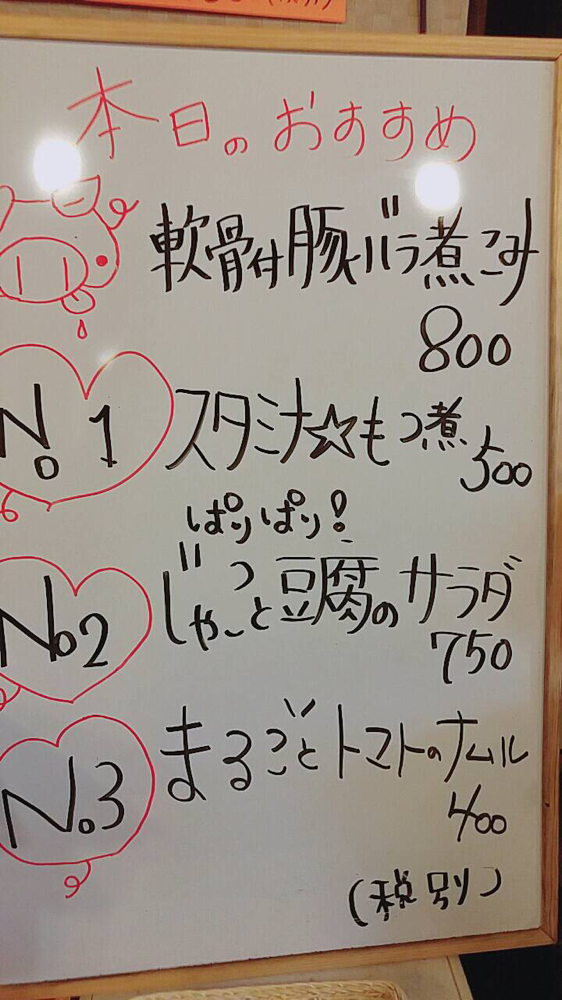 本日のおすすめ
軟骨付豚バラ煮こみ
800
No1
スタミナ☆もつ煮
500
ぱりぱり!
No2
じゃこと豆腐のサラダ
750
No3
まるごとトマトのナムル
400
(税別)